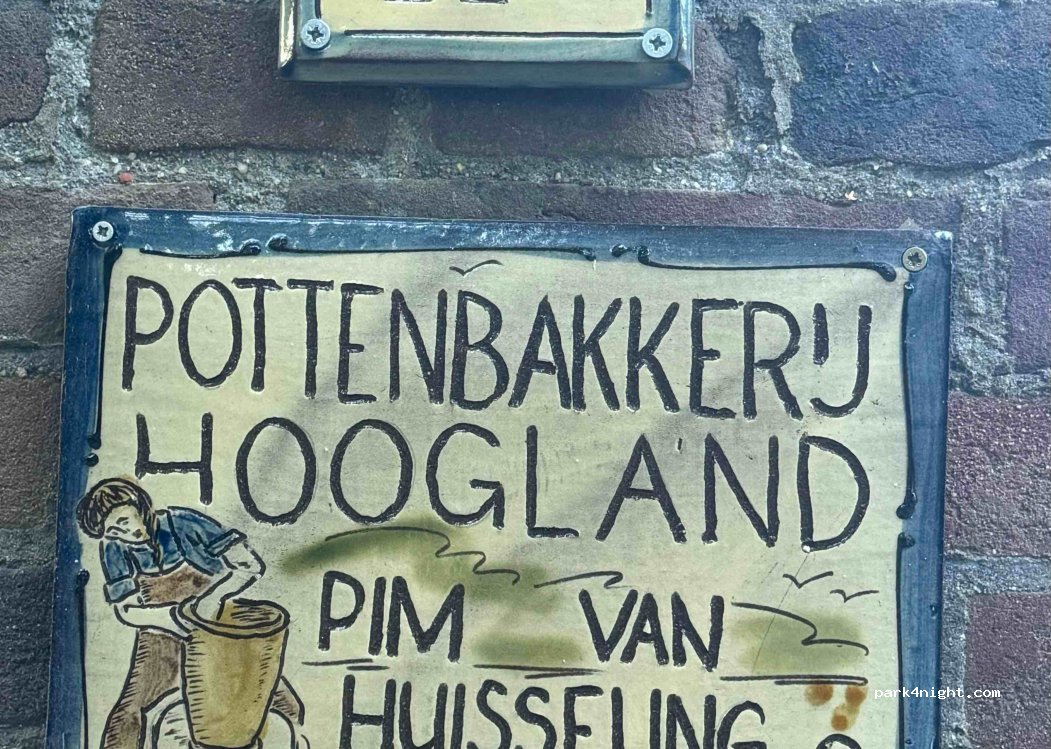 POTTENBAKKERIJ
HOOGLAND
PIM VAN
park4night.com